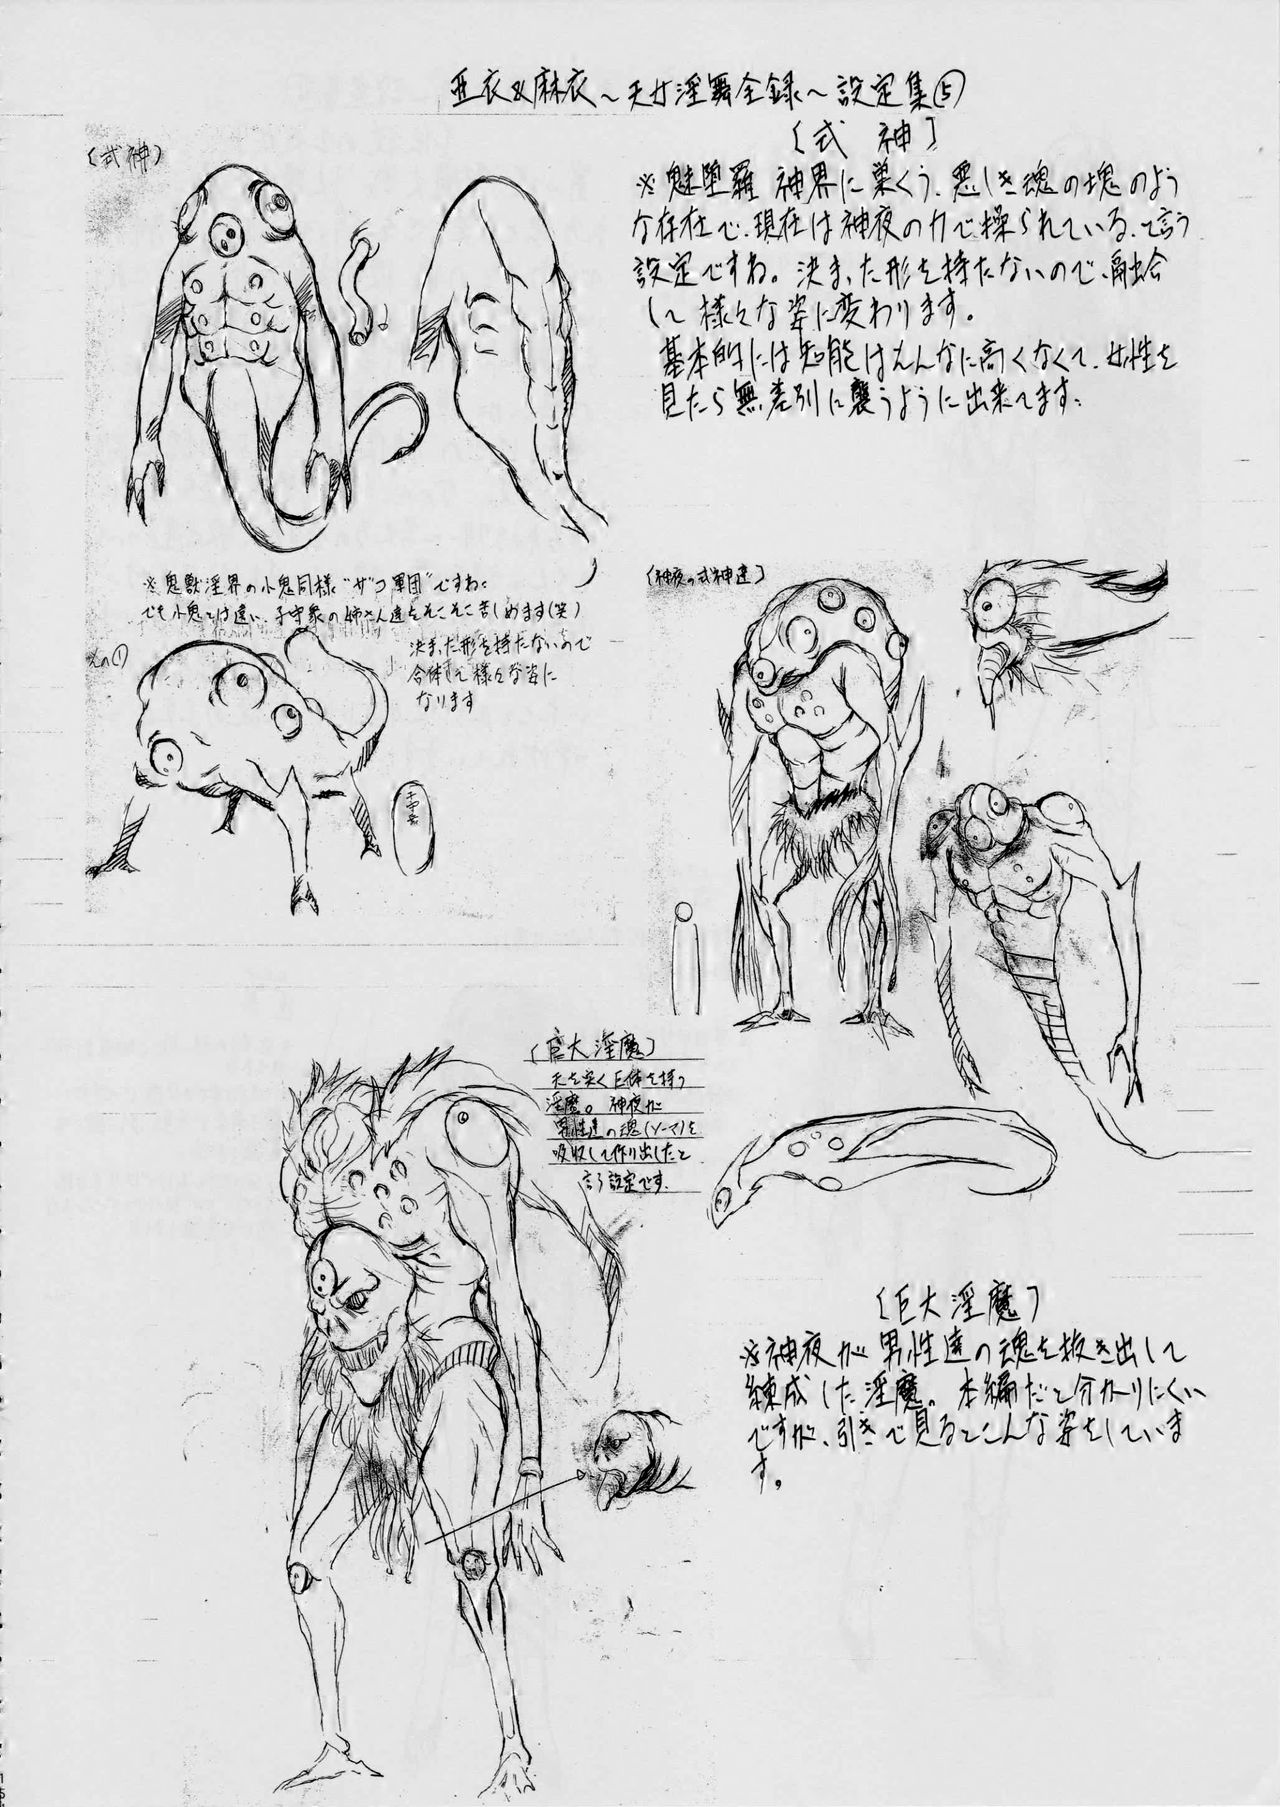 亜衣&麻衣～天女淫舞全録～設定集⑤
〔式神〕
※魅堕羅神界に巣くう、悪しき魂の塊のよう
な存在で、現在は神夜の力で操られている、と言う
設定ですね。決まった形を持たないので、融合
して様々な姿に変わります。
基本的には知能はそんなに高くなくて、女性を
見たら無差別に襲うように出来てます。
〔式神〕
※鬼獣淫界の小鬼同様“ザコ軍団”ですね。
でも小鬼とは違い、子守衆の姉さん達をそこそこ苦しめます(笑)
その①
決まった形を持たないので
合体して様々な姿に
なります
子守衆
〔神夜の式神達〕
〔巨大淫魔〕
天を突く巨体を持つ
淫魔。神夜が
男性達の魂(ソーマ)を
吸収して作り出したと
言う設定です。
〔巨大淫魔〕
※神夜が男性達の魂を抜き出して
練成した淫魔。本編だと分かりにくい
ですが、引きで見るとこんな姿をしていま
す。